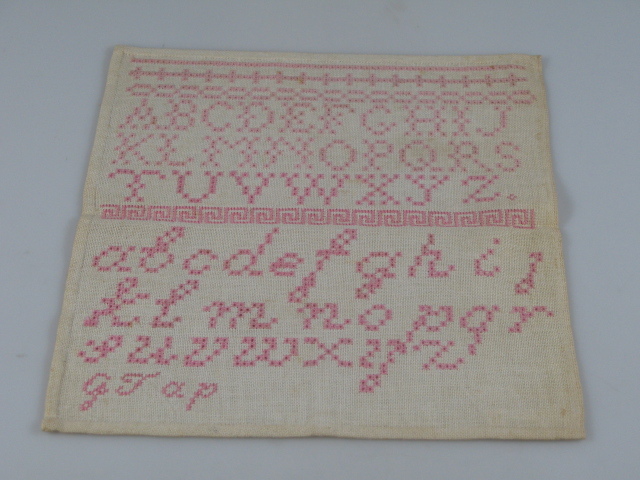 ABCDEFGHIJ
KLMNOPQRS
TUVWXYZ.
abcdefghij
klmnopqr
suvwxyz
GT ap